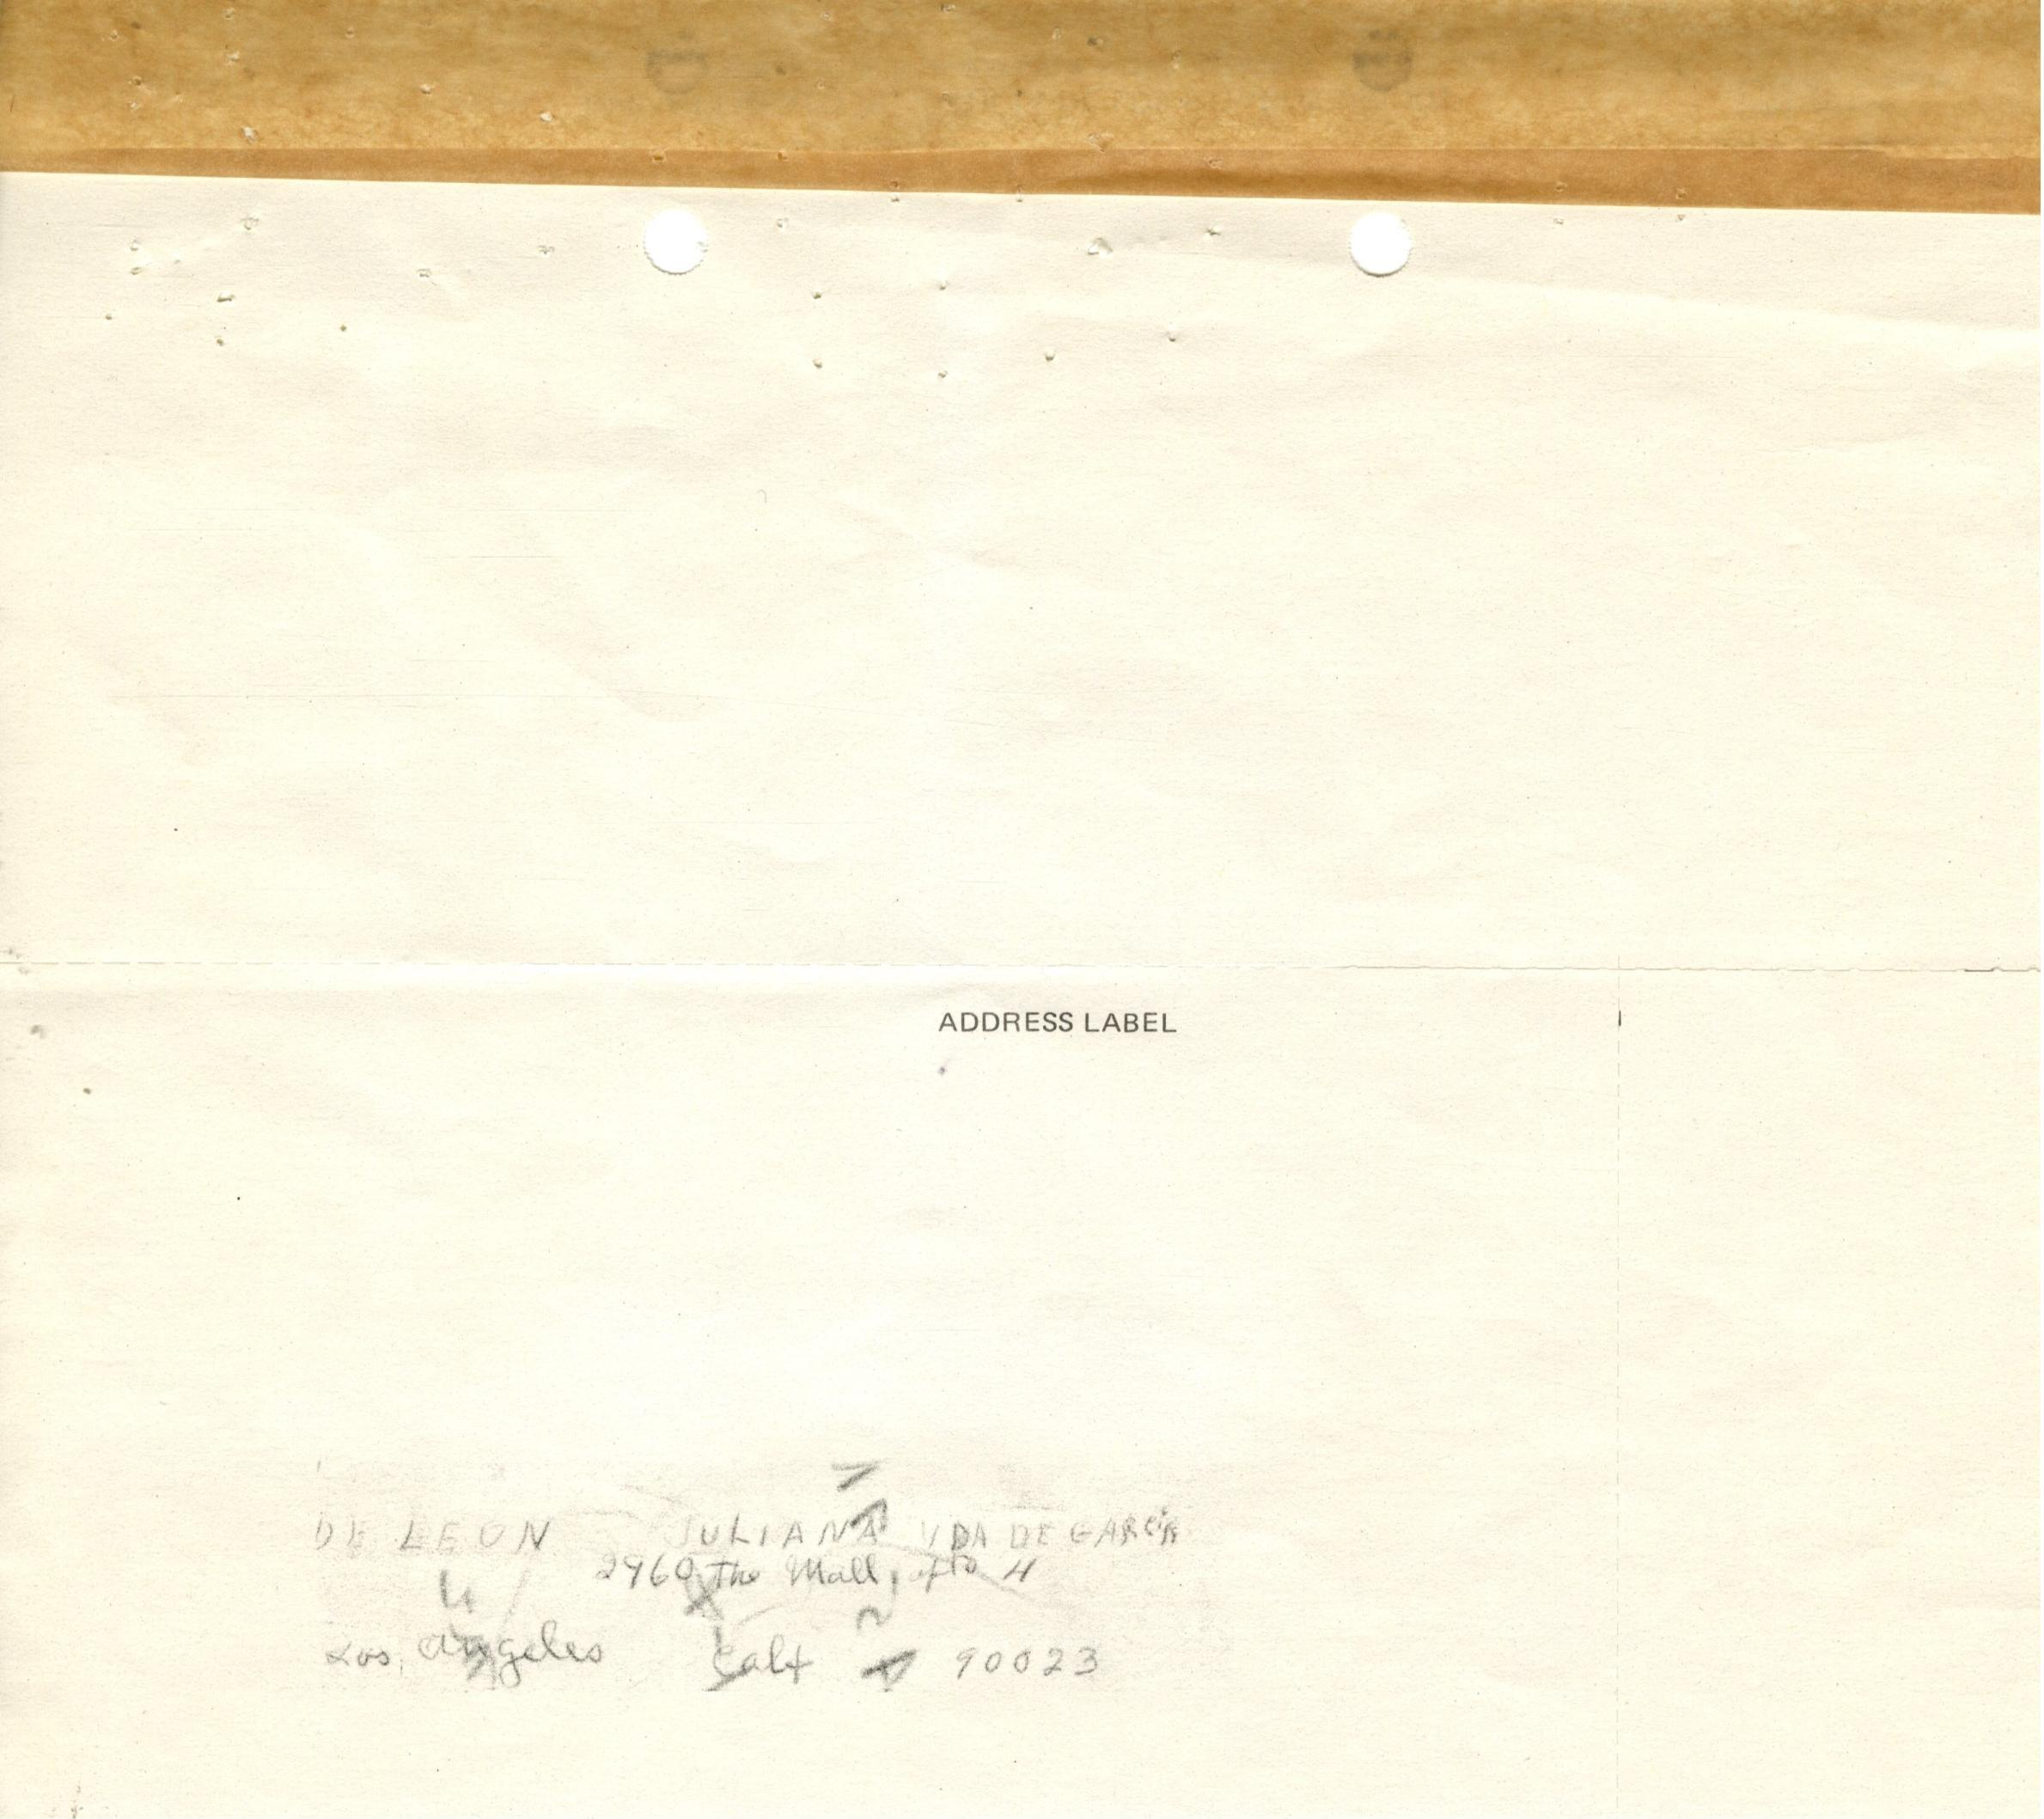 ADDRESS LABEL
DE LEON JULIANA VDA DE GARCIA
2960 The Mall, apto 4
Los Angeles Calf 90023